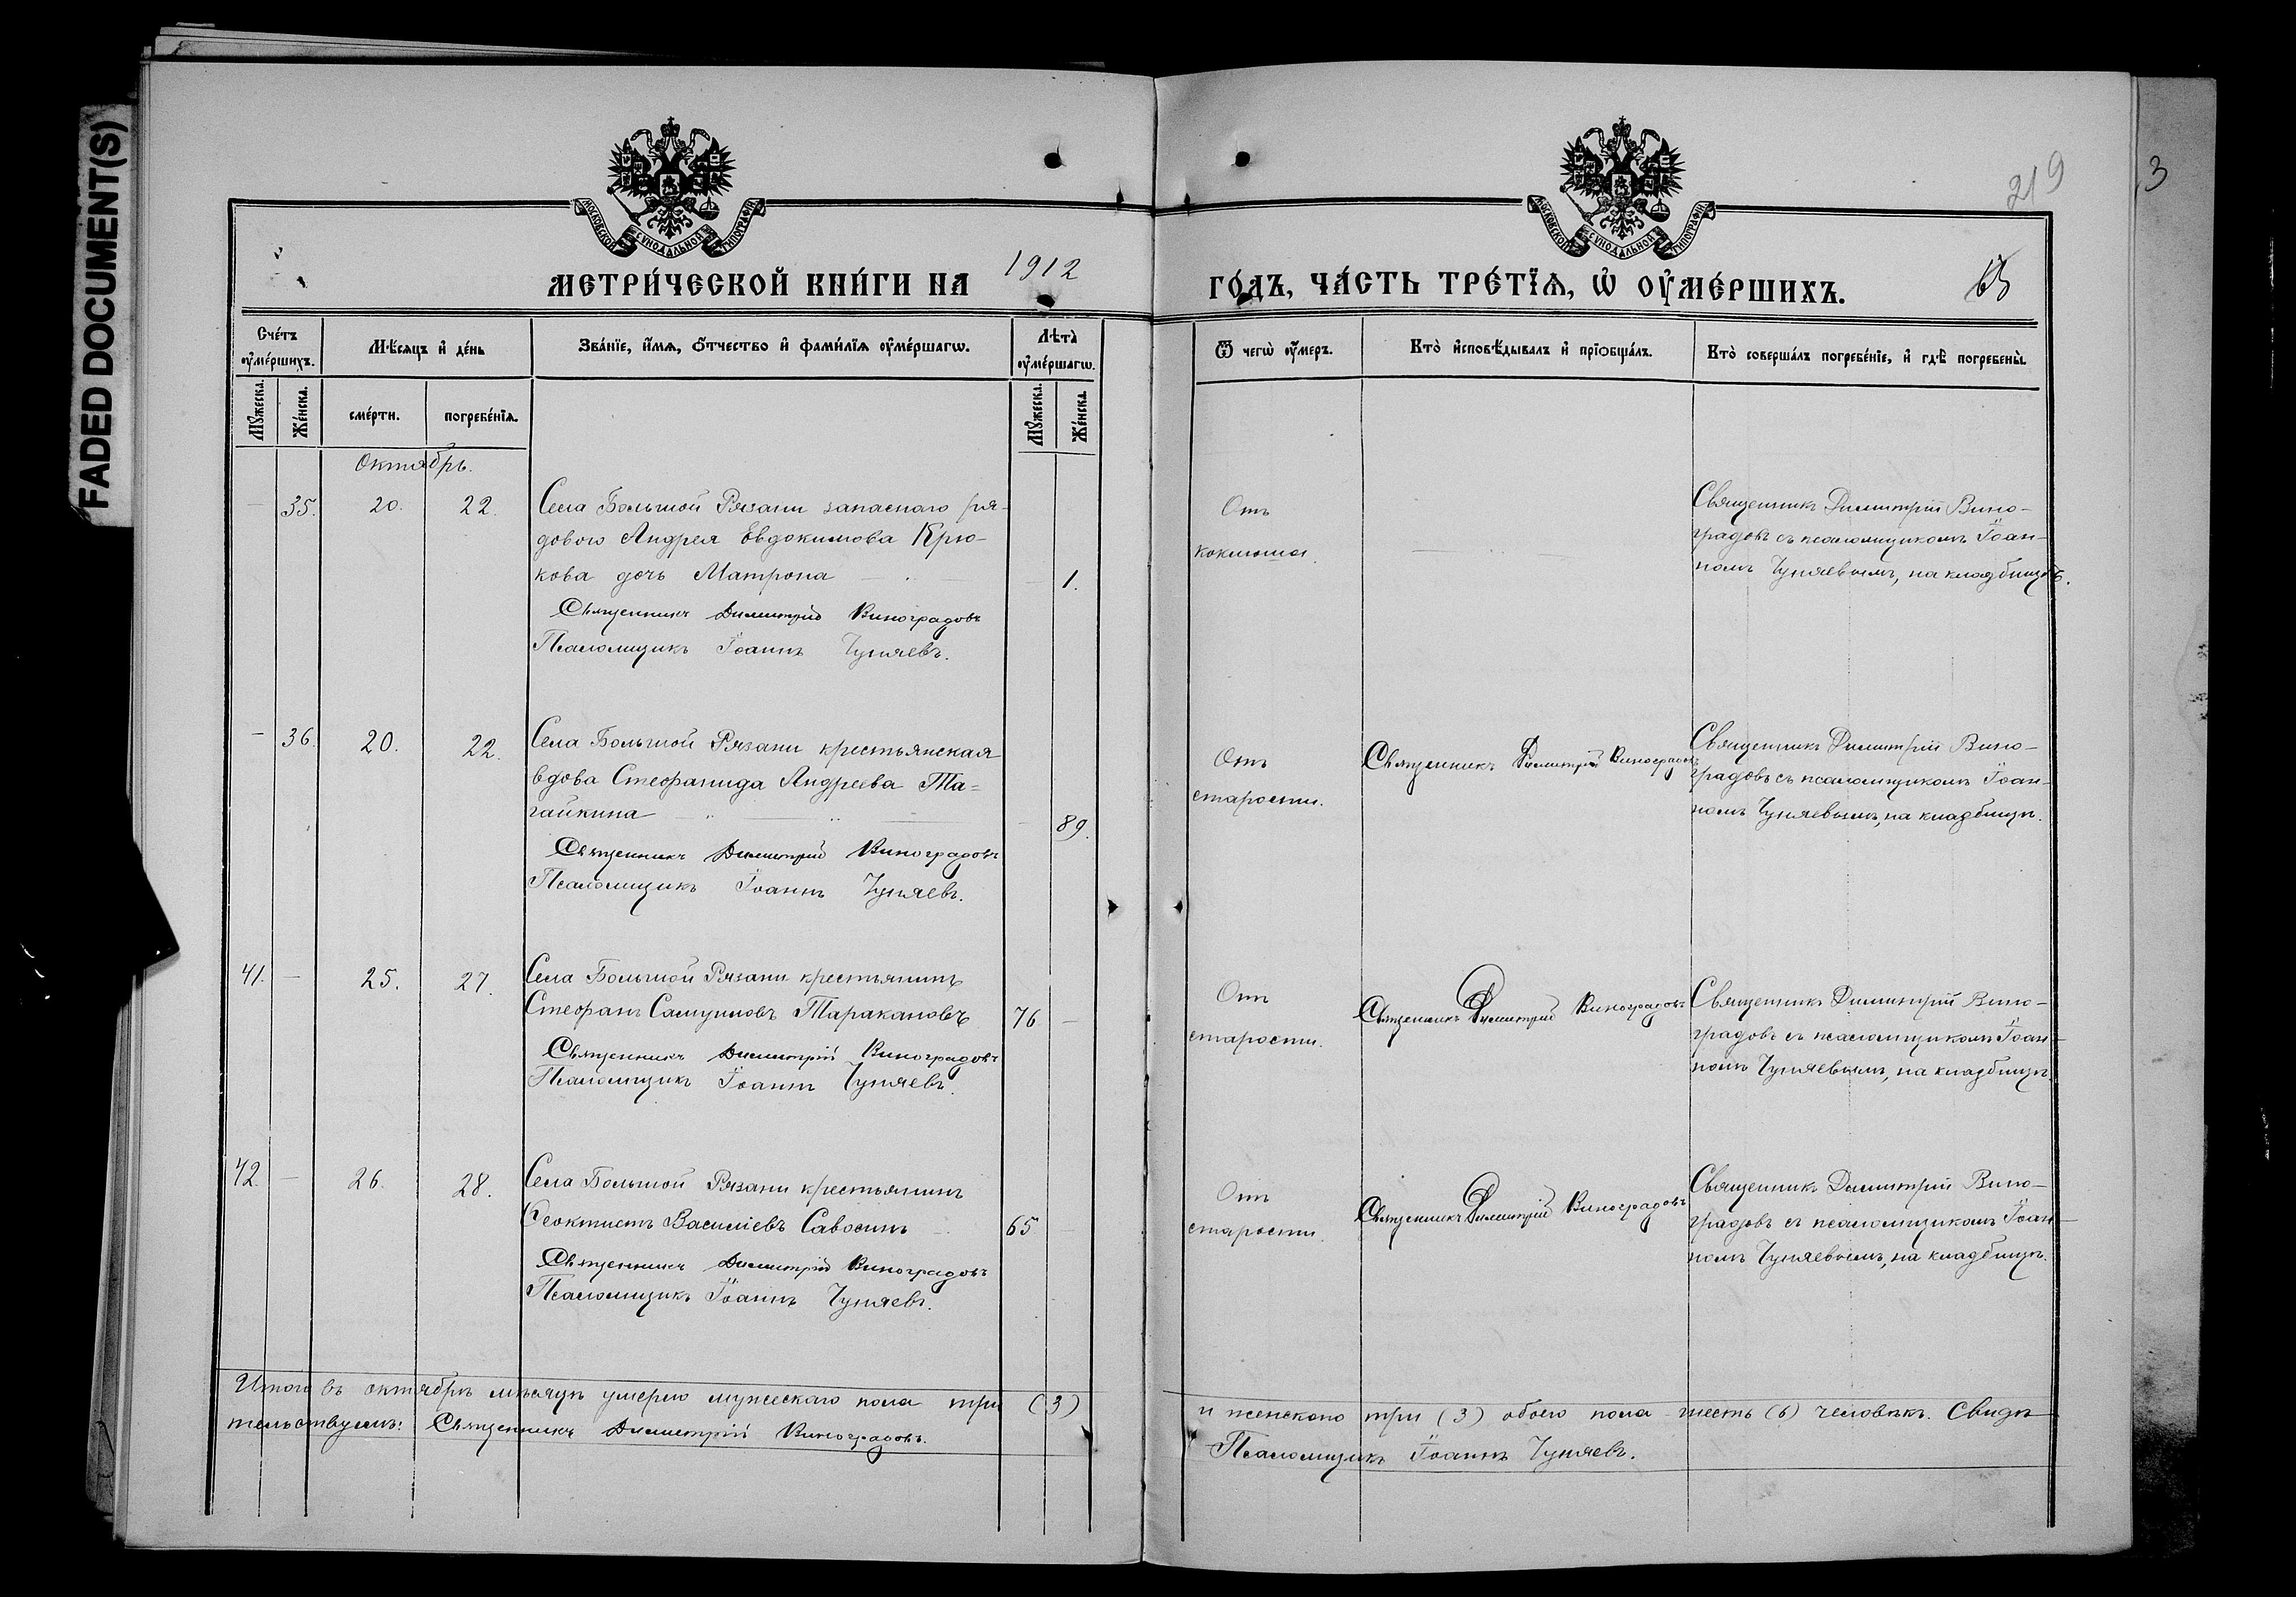 FADED DOCUMENT(S)
МОСКОВСКОЙ СѴНОДАЛЬНОЙ ТИПОГРАФІИ
МОСКОВСКОЙ СѴНОДАЛЬНОЙ ТИПОГРАФІИ
219
3
МЕТРИ́ЧЕСКОЙ КНИ́ГИ НА 1912 ГО́ДЪ, ЧА́СТЬ ТРЕ́ТЇѦ, Ѡ҆ ОУ҆МЕ́РШИХЪ.
Сче́тъ оу҆ме́ршихъ.
Мѣ́сяцъ и҆ де́нь
Зва́нїе, и҆́мѧ, ѻ҆́тчество и҆ фами́лїѧ оу҆ме́ршагѡ.
Лѣ̀та оу҆ме́ршагѡ.
Ѿ чегѡ̀ оу҆́меръ.
Кто̀ и҆сповѣ́дывалъ и҆ прїѻбща́лъ.
Кто̀ соверша́лъ погребе́нїе, и҆ гдѣ̀ погребены̀.
Мꙋ́жеска.
Же́нска.
сме́рти.
погребе́нїѧ.
Мꙋ́жеска.
Же́нска.
Октябрь.
— 35. 20. 22. Села Большой Рязани запаснаго ря-
доваго Андрея Евдокимова Крю-
кова дочь Матрона — 1.
Священникъ Димитрій Виноградовъ
Псаломщикъ Іоаннъ Чуняевъ.
Отъ
коклюша.
Священникъ Димитрій Вино-
градовъ съ псаломщикомъ Іоан-
номъ Чуняевымъ, на кладбищѣ.
— 36. 20. 22. Села Большой Рязани крестьянская
вдова Стефанида Андреева Та-
гайкина — 89.
Священникъ Димитрій Виноградовъ
Псаломщикъ Іоаннъ Чуняевъ.
Отъ
старости.
Священникъ Димитрій Виноградовъ
Священникъ Димитрій Вино-
градовъ съ псаломщикомъ Іоан-
номъ Чуняевымъ, на кладбищѣ.
41. — 25. 27. Села Большой Рязани крестьянинъ
Стефанъ Самуиловъ Таракановъ 76 —
Священникъ Димитрій Виноградовъ
Псаломщикъ Іоаннъ Чуняевъ.
Отъ
старости.
Священникъ Димитрій Виноградовъ
Священникъ Димитрій Вино-
градовъ съ псаломщикомъ Іоан-
номъ Чуняевымъ, на кладбищѣ.
42. — 26. 28. Села Большой Рязани крестьянинъ
Ѳеоктистъ Василіевъ Савосинъ — 65
Священникъ Димитрій Виноградовъ
Псаломщикъ Іоаннъ Чуняевъ.
Отъ
старости.
Священникъ Димитрій Виноградовъ
Священникъ Димитрій Вино-
градовъ съ псаломщикомъ Іоан-
номъ Чуняевымъ, на кладбищѣ.
Итого въ октябрѣ мѣсяцѣ умерло мужескаго пола три (3) и женскаго три (3) обоего пола шесть (6) человѣкъ. Свидѣ-
тельствуемъ: Священникъ Димитрій Виноградовъ. Псаломщикъ Іоаннъ Чуняевъ.